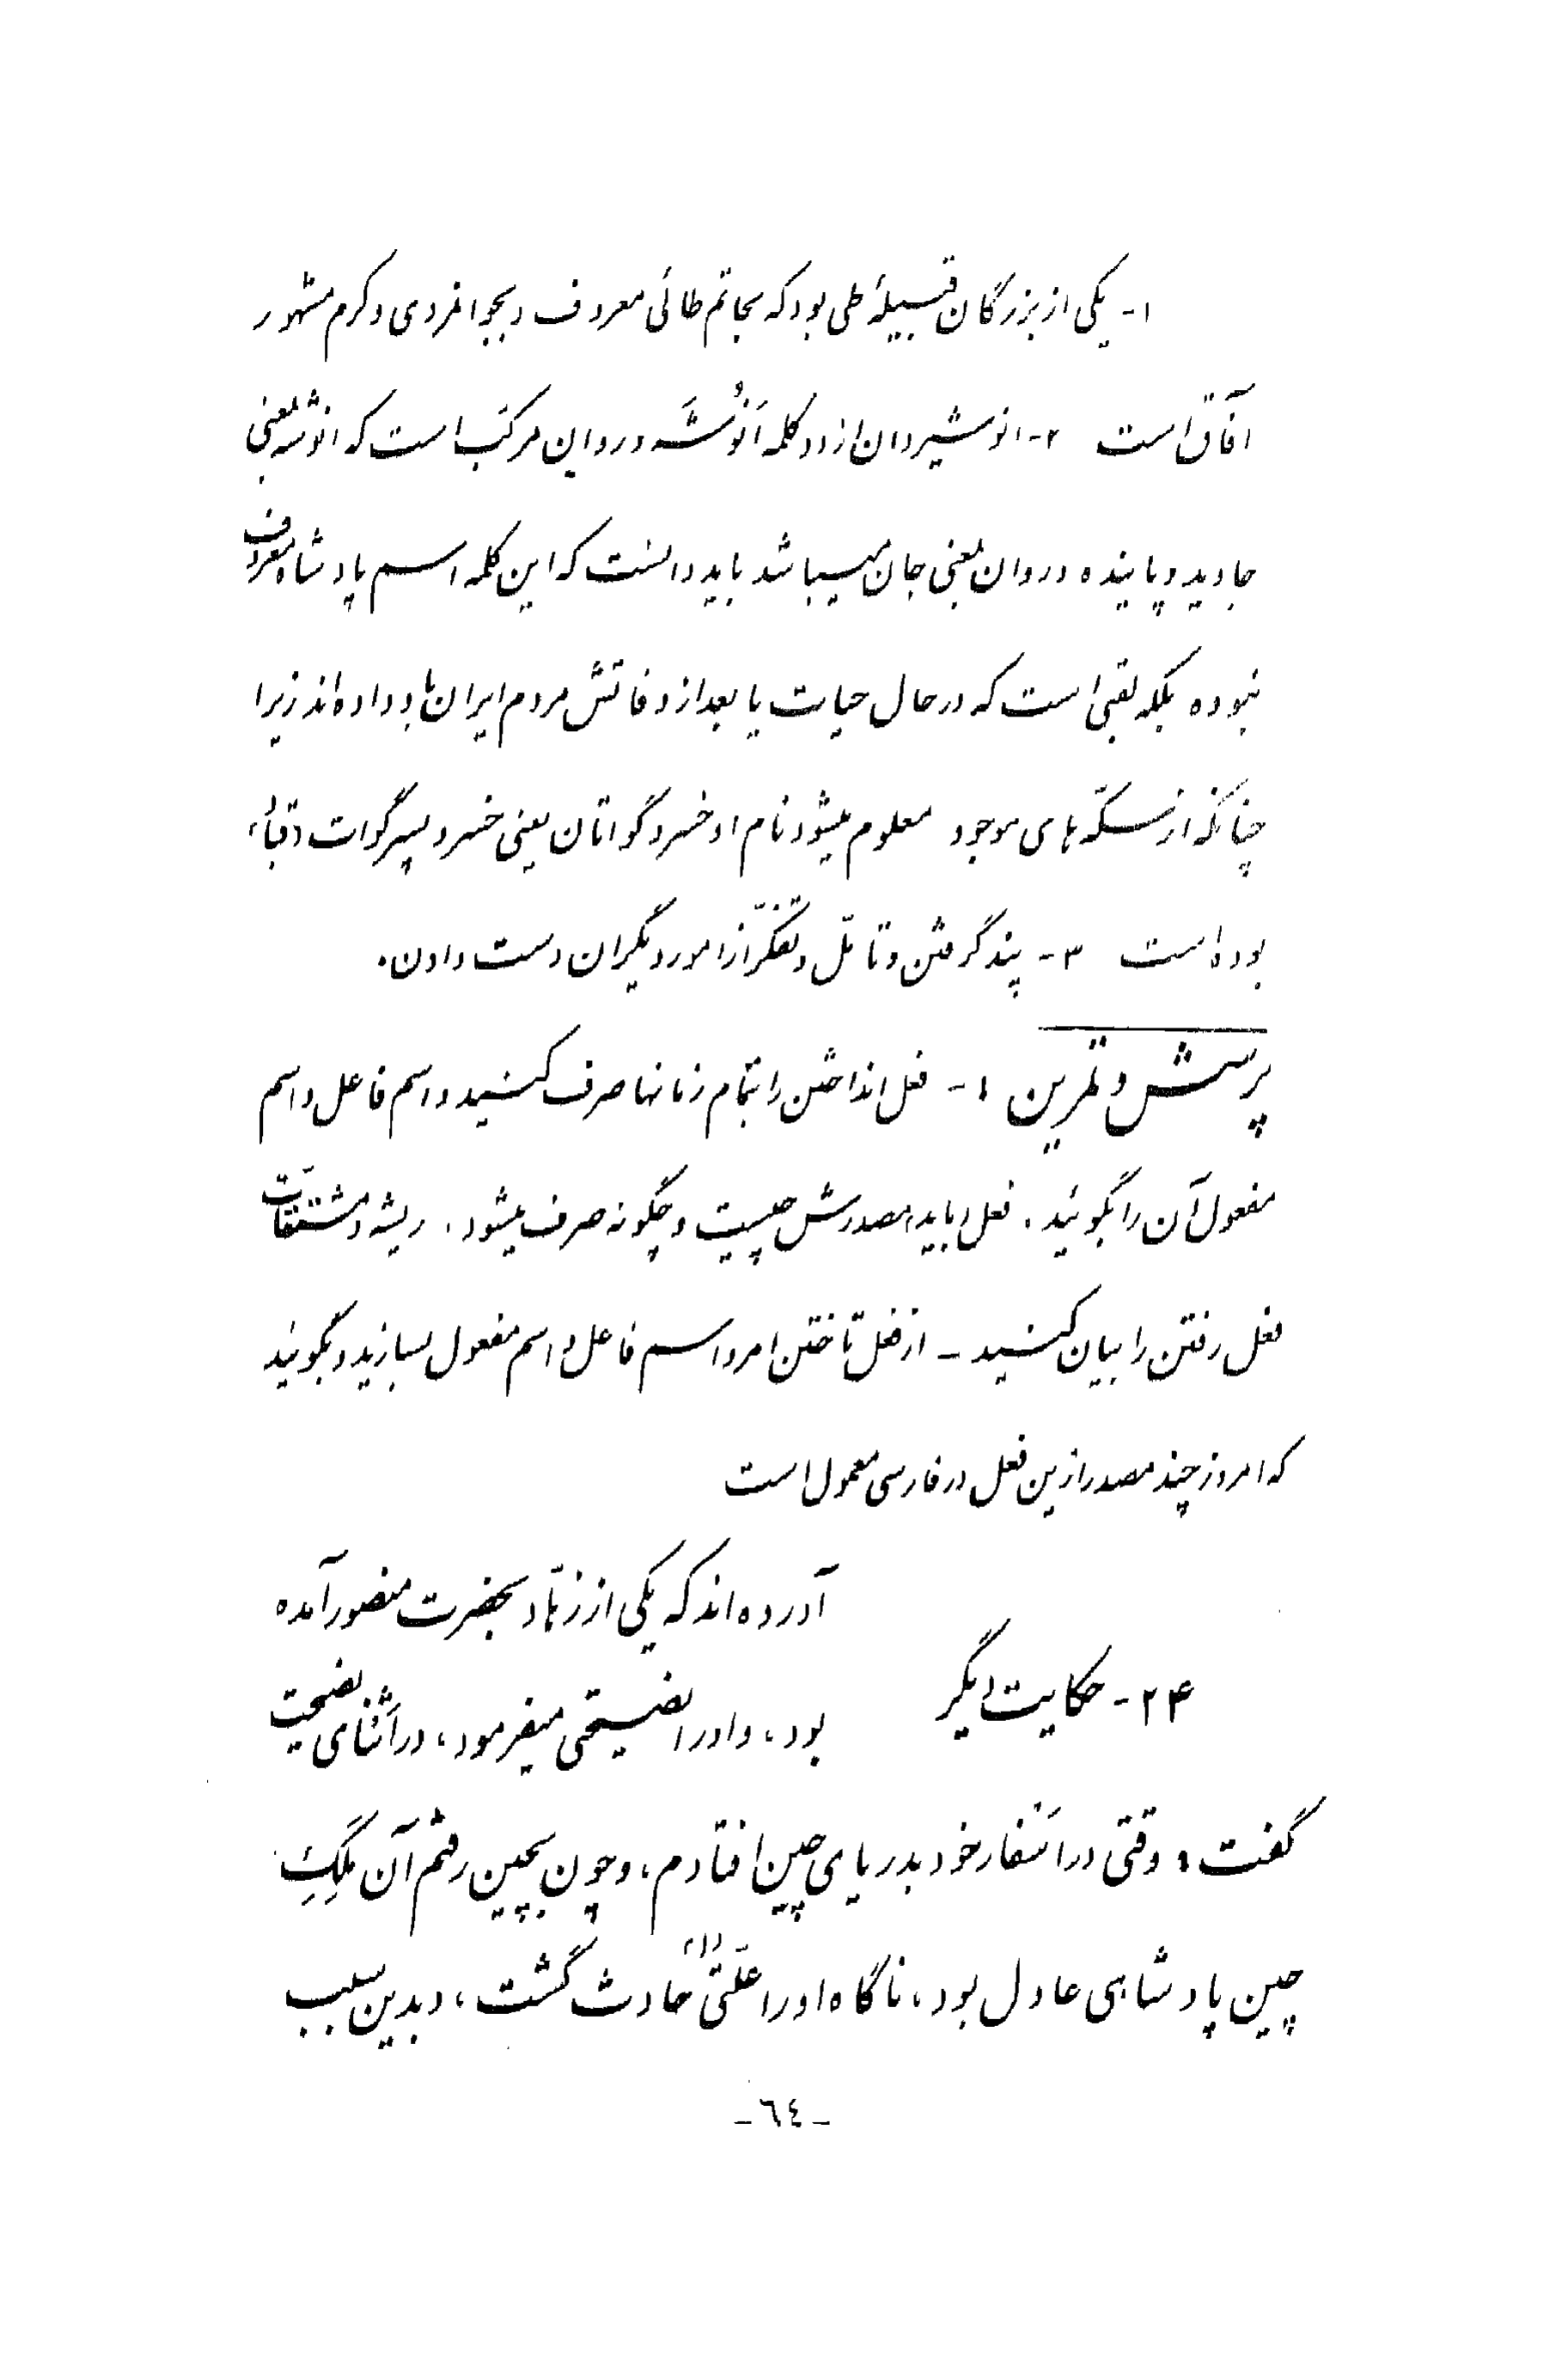 ۱- یکی از بزرگان قبیلهٔ طی بود که بحاتم طائی معروف و بجوانمردی و کرم مشهور
آفاق است ۲- انوشیروان از دو کلمه اَنُوشَه و روان مرکب است که انوشه بمعنی
جاوید و پاینده و روان بمعنی جان میباشد باید دانست که این کلمه اسم پادشاه معروف
نبوده بلکه لقبی است که در حال حیات یا بعد از وفاتش مردم ایران باو داده‌اند زیرا
چنانکه از سکّه‌های موجود معلوم میشود نام او خسرو گواتان یعنی خسرو پسر گوات (قباد)
بوده است ۳- پند گرفتن و تأمّل و تفکّر از امور دیگران دست دادن.
پرسش و تمرین ۱- فعل انداختن را بتمام زمانها صرف کنید و اسم فاعل و اسم
مفعول آن را بگوئید. فعل (باید) مصدرش چیست و چگونه صرف میشود. ریشه و مشتقّات
فعل رفتن را بیان کنید - از فعل تاختن امر و اسم فاعل و اسم مفعول بسازید و بگوئید
که امروز چند مصدر ازین فعل در فارسی معمول است
آورده‌اند که یکی از زهّاد بحضرت منصور آمده
۲۴- حکایت دیگر
بود، و او را نصیحتی میفرمود، در اَثنای نصیحت
گفت: وقتی در اَسفار خود بدریای چین افتادم، و چون بچین رفتم آن مَلِکِ
چین پادشاهی عادل بود، ناگاه او را علّتی (۱) حادث گشت، و بدین سبب
-٦٤-